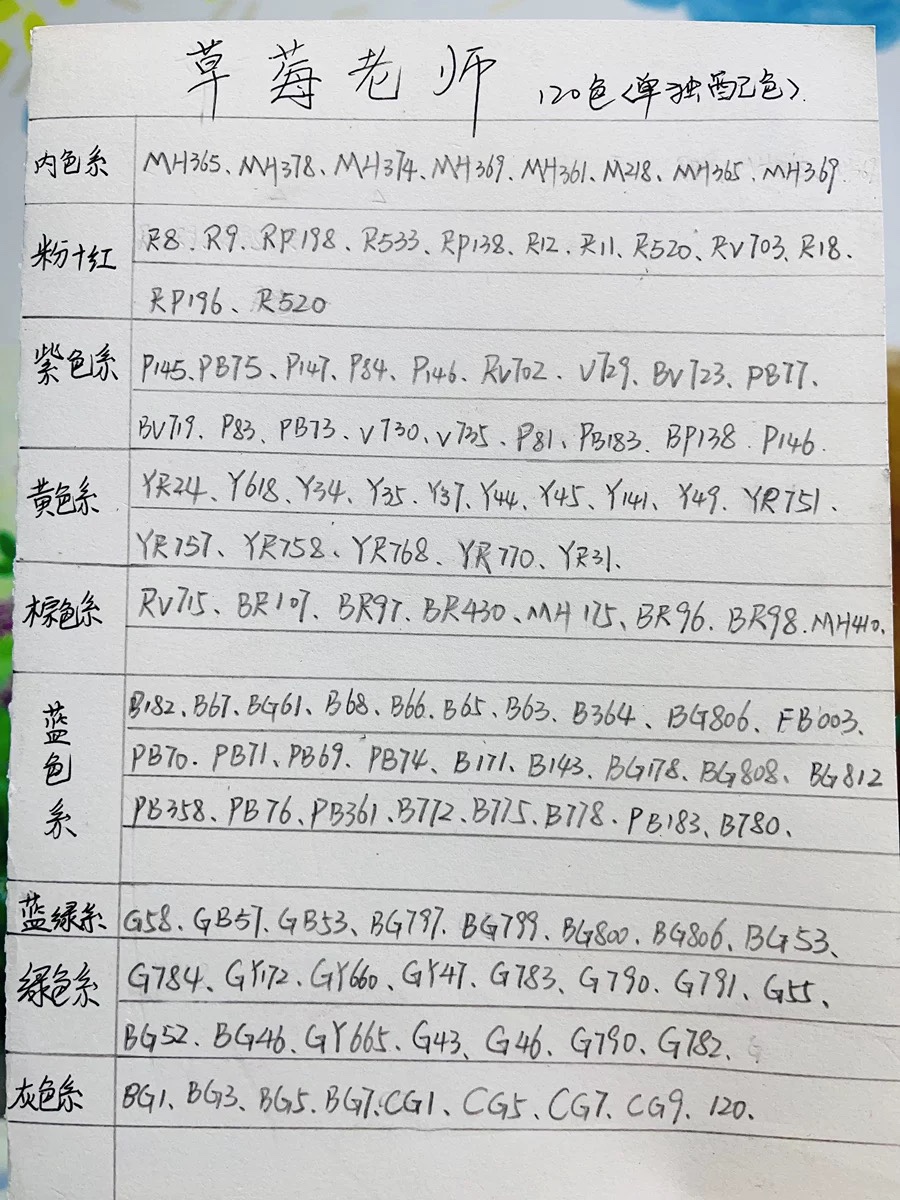 草莓老师 120色<单独配色>
内色系 MH365、MH378、MH374、MH369、MH361、M218、MH365、MH369
粉十红 R8、R9、RP198、R533、RP138、R12、R11、R520、RV703、R18、
RP196、R520
紫色系 P145、PB75、P147、P84、P146、RV702、V729、BV723、PB77、
BV719、P83、PB73、V730、V735、P81、PB183、BP138、P146
黄色系 YR24、Y618、Y34、Y35、Y37、Y44、Y45、Y141、Y49、YR751、
YR757、YR758、YR768、YR770、YR31、
棕色系 RV715、BR107、BR97、BR430、MH175、BR96、BR98、MH410、
蓝色系 B182、B67、BG61、B68、B66、B65、B63、B364、BG806、FB003、
PB70、PB71、PB69、PB74、B171、B143、BG178、BG808、BG812
PB358、PB76、PB361、B772、B775、B778、PB183、B780、
蓝绿系 G58、GB57、GB53、BG797、BG799、BG800、BG806、BG53、
绿色系 G784、GY172、GY660、GY47、G783、G790、G791、G55、
BG52、BG46、GY665、G43、G46、G790、G782、
灰色系 BG1、BG3、BG5、BG7、CG1、CG5、CG7、CG9、120、